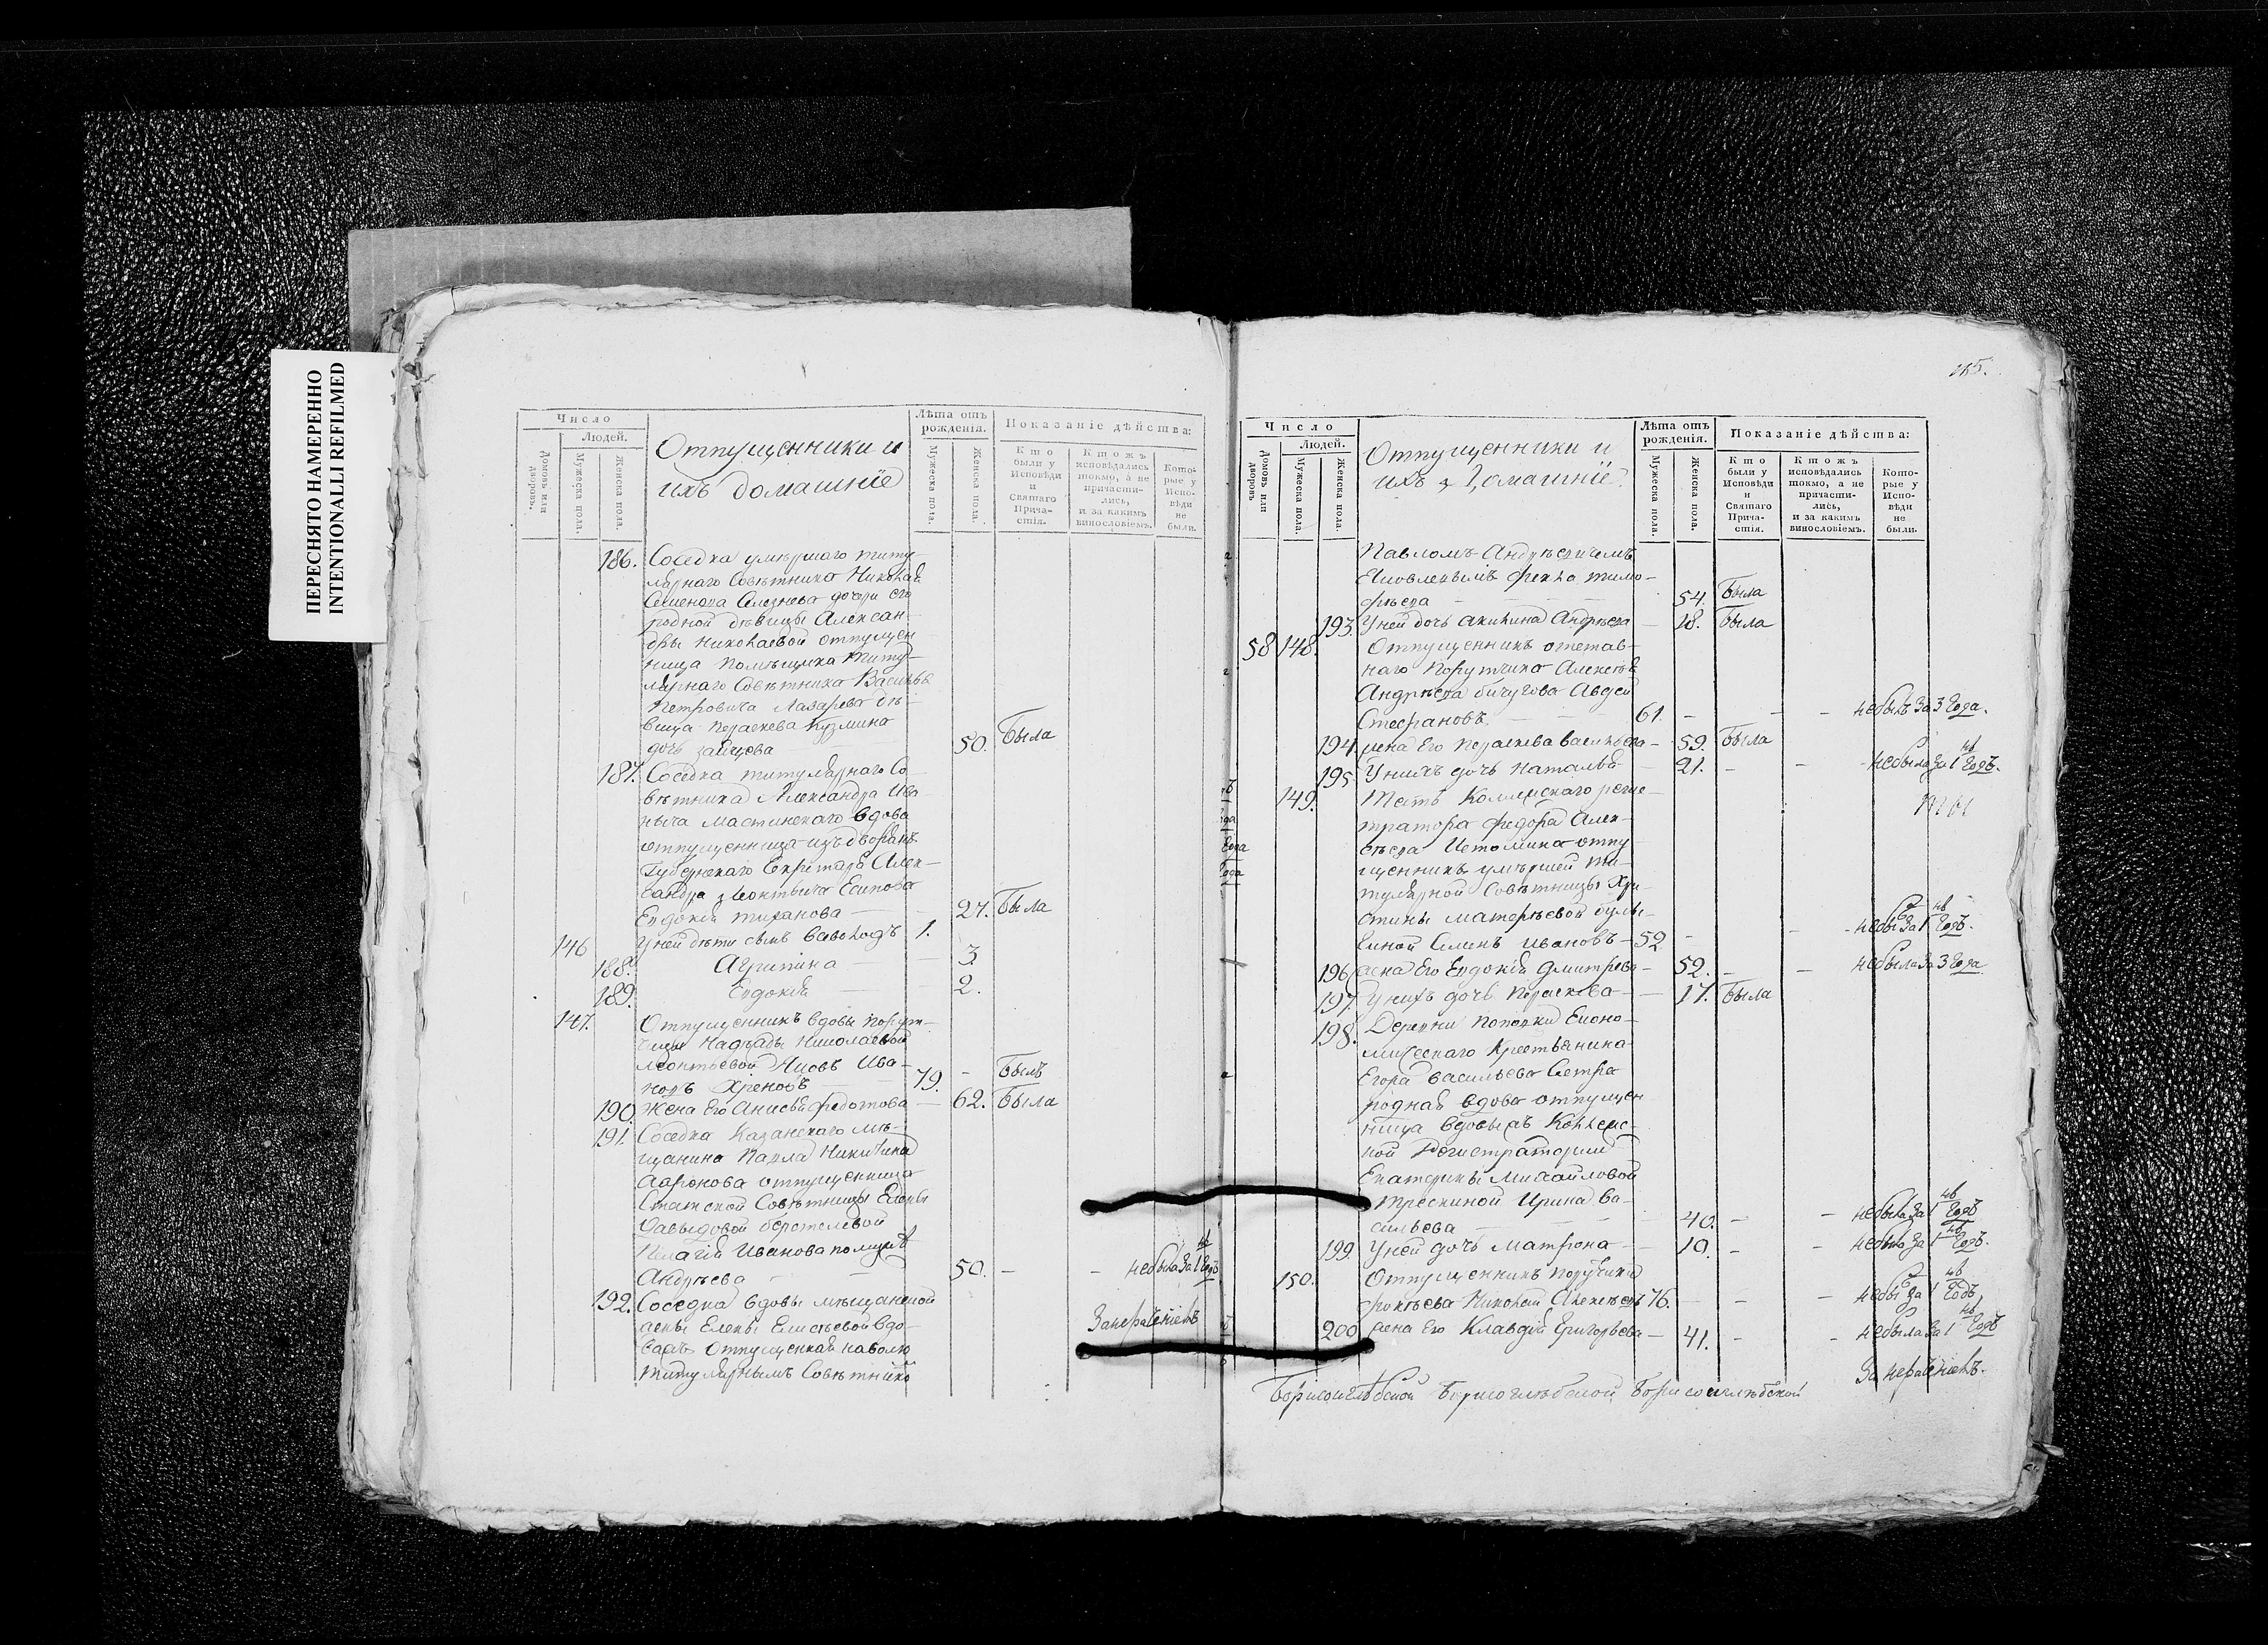 ПЕРЕСНЯТО НАМЕРЕННО
INTENTIONALLI REFILMED
Число
Людей.
Домовъ или дворовъ.
Мужеска пола.
Женска пола.
Отпущенники и
ихъ домашнїе
Лѣта отъ рожденія.
Мужеска пола.
Женска пола.
Показаніе дѣйства:
Кто были у Исповѣди и Святаго Причастія.
Ктожъ исповѣдались токмо, а не причастились, и за какимъ винословіемъ.
Которые у Исповѣди не были.
186. Соседка умершаго титу-
лярнаго Совѣтника Николая
Семенова Селезнева дочери его
родной дѣвицы Алексан-
дры Николаевой отпущен
ница помѣщика титу-
лярнаго Совѣтника Василья
Петровича Лазарева дѣ-
вица Пераскева Кузмина
дочь Зайцова 50. Была
187. Соседка титулярнаго Со-
вѣтника Александра Ива-
ныча вдова
отпущенница изъ дворянъ
Губернскаго Секретаря Алек-
сандра Леонтьича Есипова
Евдокія 27. Была
146 У ней дѣти сынъ Всеволодъ 1.
188. Агрипина 3.
189. Евдокія 2.
147. Отпущенникъ вдовы поруч-
чицы Надежды Николаевой
Леонтьевой Яковъ Ива-
новъ Хреновъ 79. - Былъ
190. Жена Его Анисья Федотова 62. Была
191. Соседка Казанскаго мѣ-
щанина Павла Никитина
Ааронова отпущенница
Статской Совѣтницы Елены
Давыдовой
Пелагія Иванова
Андрѣева 50. - - небыла за 1 й Годъ
192. Соседка вдовы мѣщанской
жены Елены Елисѣевой вдо-
ва отпущенная на волю За нерадениемъ
титулярнымъ Совѣтнико
Число
Людей.
Домовъ или дворовъ
Мужеска пола.
Женска пола.
Отпущенники и
ихъ Домашнїе
Лѣта отъ рожденія.
Мужеска пола.
Женска пола.
Показаніе дѣйства:
Кто были у Исповѣди и Святаго Причастія.
Ктожъ исповѣдались токмо, а не причастились, и за какимъ винословіемъ.
Которые у Исповѣди не были.
Павломъ Андрѣевичемъ
Яковлевымъ Фекла Тимо-
фѣева 54. Была
193. У ней дочь Акилина Андрѣева 18. Была
58 148. Отпущенникъ отстав-
наго Порутчика Алексѣя
Андрѣева Бичугова Авдей
Стефановъ 61. - - - небылъ за 3 Года.
194. жена Его Пераскева Васильева 59. Была
195 У нихъ дочь Наталья 21. - - небыла за 1 й Годъ.
149. Тесть Коллежскаго реги-
стратора Федора Алек-
сѣева Истомина отпу-
щенникъ умершей ти-
тулярной Совѣтницы Хри-
стины Матфѣевой
Семенъ Ивановъ 52. - - небы за 1 й Годъ.
196. жена Его Евдокія Дмитрева 52. - - небыла за 3 Года
197. У нихъ дочь Пераскева 17. Была
198. Деревни Поповки Еконо-
мическаго Крестьянина
Егора Васильева Сестра
родная вдова отпущен
ница вдовы Коллежс-
кой Регистраторши
Екатерины Михайловой
Трескиной Ирина Ва-
сильева 40. - - небыла за 1 й Годъ
199. У ней дочь Матрона 10. - - небыла за 1 й Годъ.
150. Отпущенникъ поручика
Николай Алексѣевъ 76. - - небы за 1 й Годъ
200. жена Его Клавдія Григорьева 41. - - небыла за 1 й Годъ
За нерадениемъ.
Борисоглѣбской Борисоглѣбской Борисоглѣбской